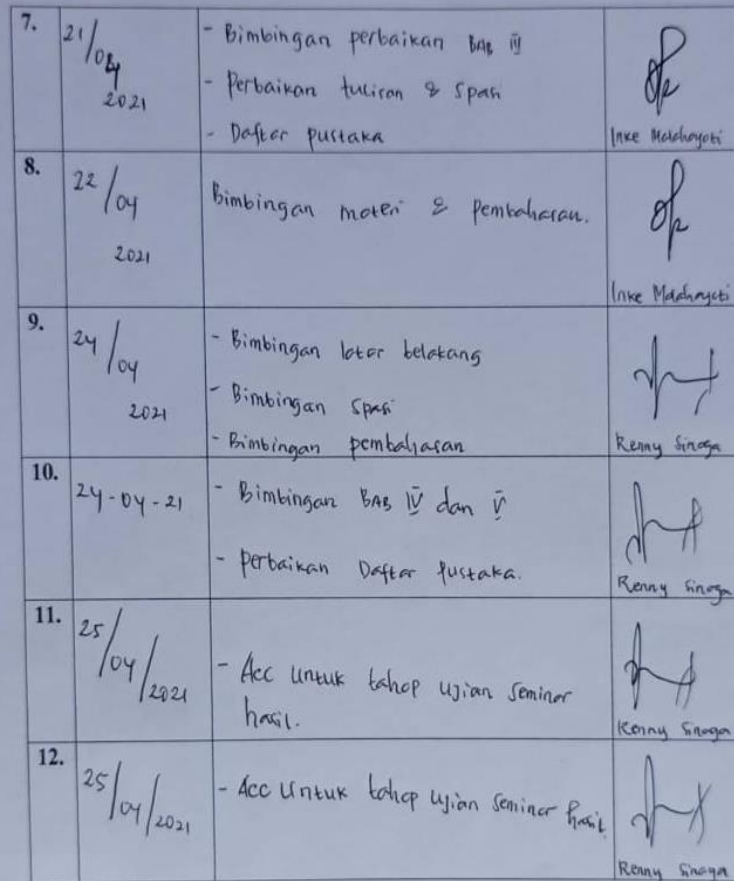 7. 21/04 2021
- Bimbingan perbaikan BAB IV
- Perbaikan tulisan & spasi
- Daftar pustaka
Inke Malahayati
8. 22/04 2021
Bimbingan materi & pembahasan.
Inke Malahayati
9. 24/04 2021
- Bimbingan latar belakang
- Bimbingan spasi
- Bimbingan pembahasan
Renny Sinaga
10. 24-04-21
- Bimbingan BAB IV dan V
- perbaikan Daftar pustaka.
Renny Sinaga
11. 25/04/2021
- Acc untuk tahap ujian seminar
hasil.
Renny Sinaga
12. 25/04/2021
- Acc untuk tahap ujian seminar hasil
Renny Sinaga